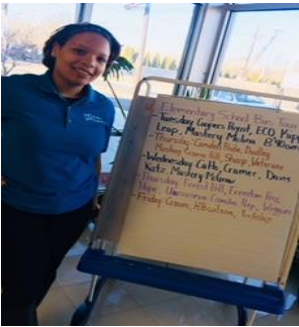 Elementary School Bus Tour
-Tuesday Coopers Poynt, ECO,
Leap, Mastery Molina
-Thursday Camden Pride, Dudley
Mastery Cramer Hill, Sharp, Veterans
-Wednesday Catto, Cramer, Davis
Katz, Mastery McGraw
-Thursday Forest Hill, Freedom Prep,
Hope, Uncommon Camden Prep, Wiggins
-Friday Cream, RBowtown, Yorkship